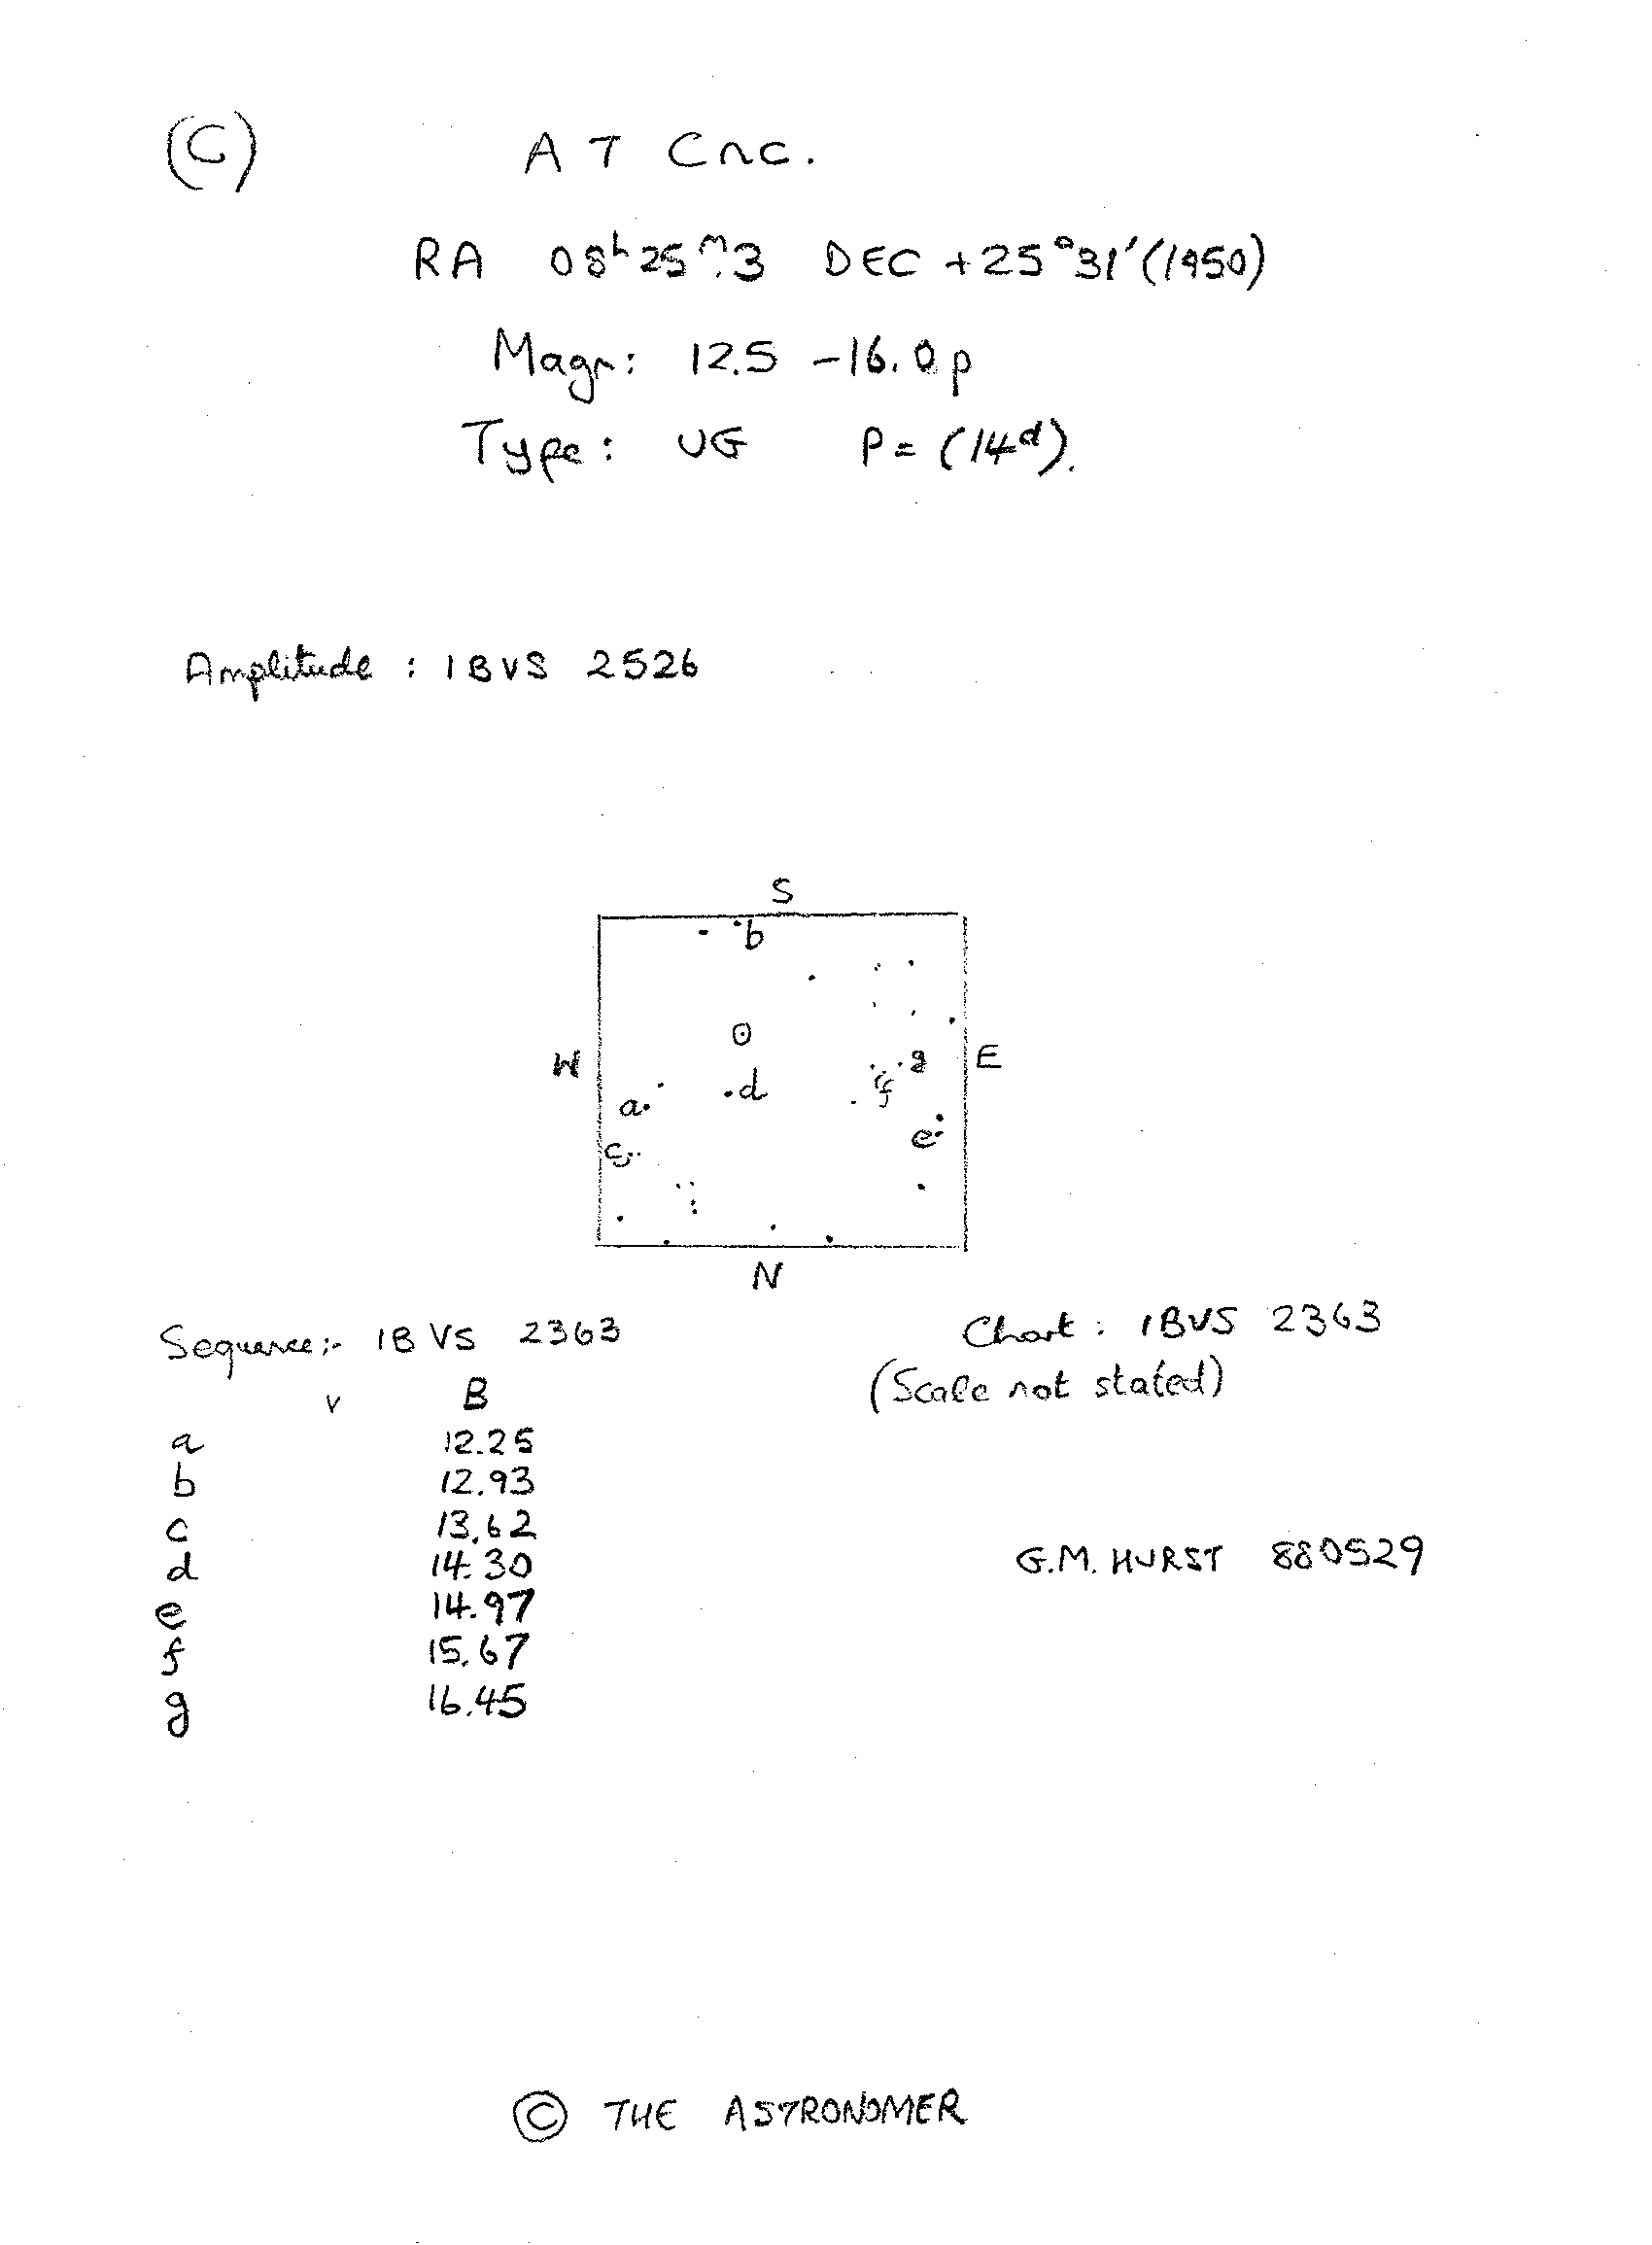 (C) AT Cnc.
RA 08ʰ25ᵐ.3 DEC +25°31'(1950)
Magn: 12.5 -16.0p
Type: UG P=(14ᵈ).
Amplitude : IBVS 2526
S
b
W
E
g
d
f
a
e
c
N
Sequence:- IBVS 2363
Chart : IBVS 2363
(Scale not stated)
V B
a 12.25
b 12.93
c 13.62
d 14.30
e 14.97
f 15.67
g 16.45
G.M. HURST 880529
© THE ASTRONOMER